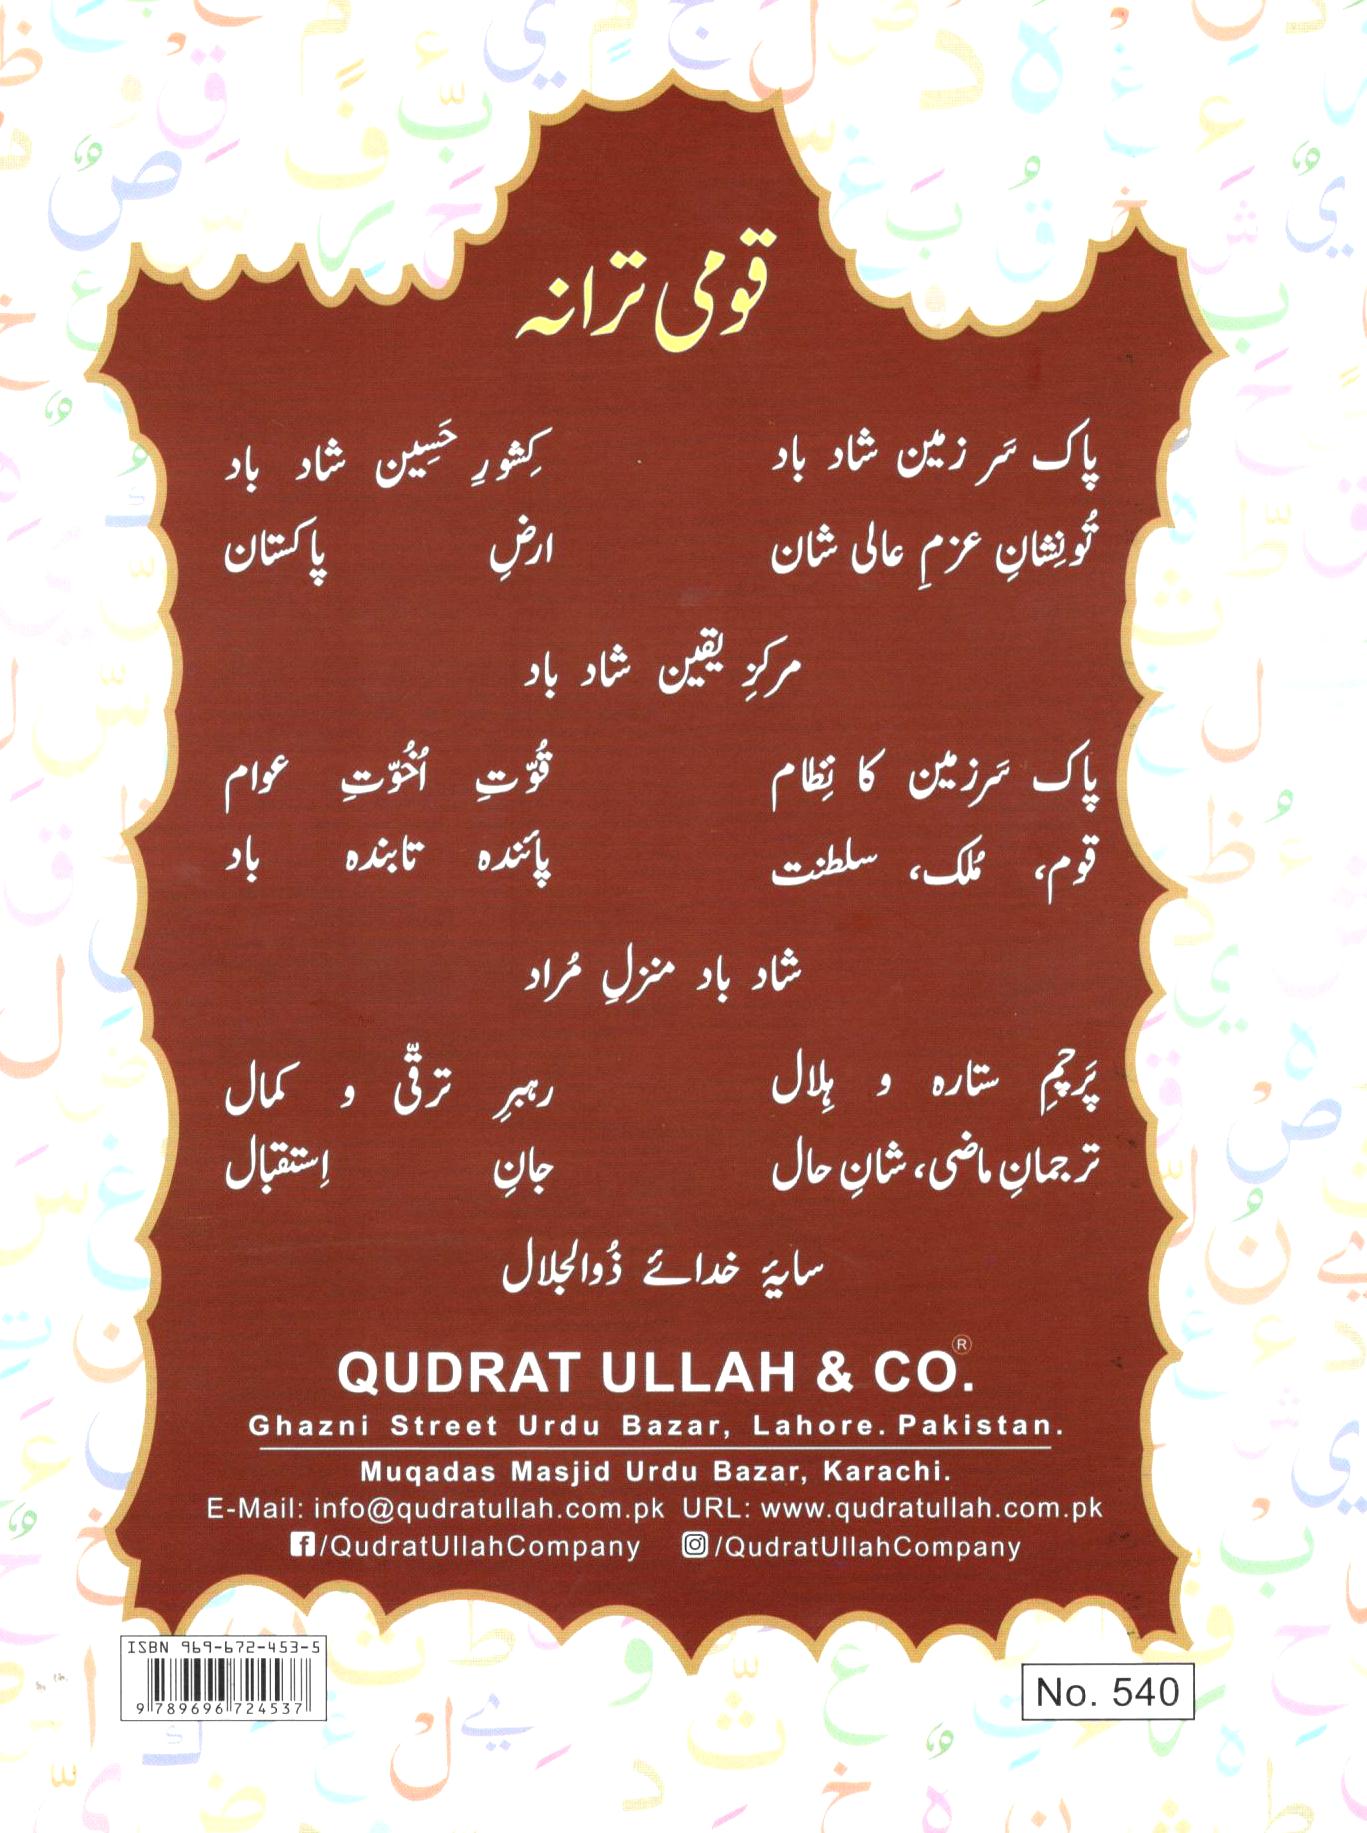 قومی ترانہ
پاک سَر زمین شاد باد کِشورِ حَسِین شاد باد
تُو نِشانِ عزمِ عالی شان ارضِ پاکستان
مرکزِ یقین شاد باد
پاک سَرزمین کا نِظام قُوّتِ اُخُوّتِ عوام
قوم، مُلک، سلطنت پائندہ تابندہ باد
شاد باد منزلِ مُراد
پَرچمِ ستارہ و ہِلال رہبرِ ترقّی و کمال
ترجمانِ ماضی، شانِ حال جانِ اِستقبال
سایۂ خدائے ذُوالجلال
QUDRAT ULLAH & CO.®
Ghazni Street Urdu Bazar, Lahore. Pakistan.
Muqadas Masjid Urdu Bazar, Karachi.
E-Mail: info@qudratullah.com.pk URL: www.qudratullah.com.pk
/QudratUllahCompany /QudratUllahCompany
ISBN 969-672-453-5
9 789696 724537
No. 540